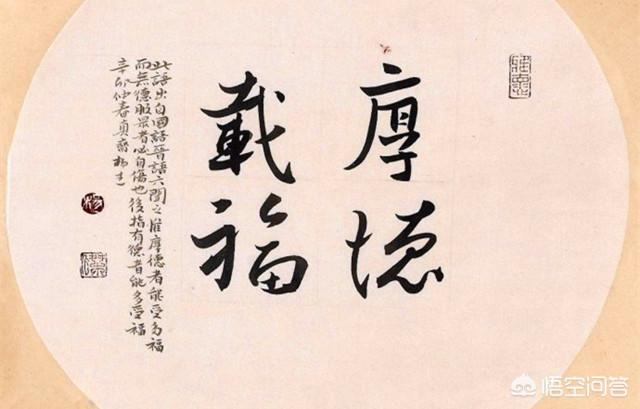 厚德
載福
此語出自國語晉語六聞之唯厚德者能受多福
而無德服眾者必自傷也後指有德者能多受福
辛卯仲春貞齋
悟空问答